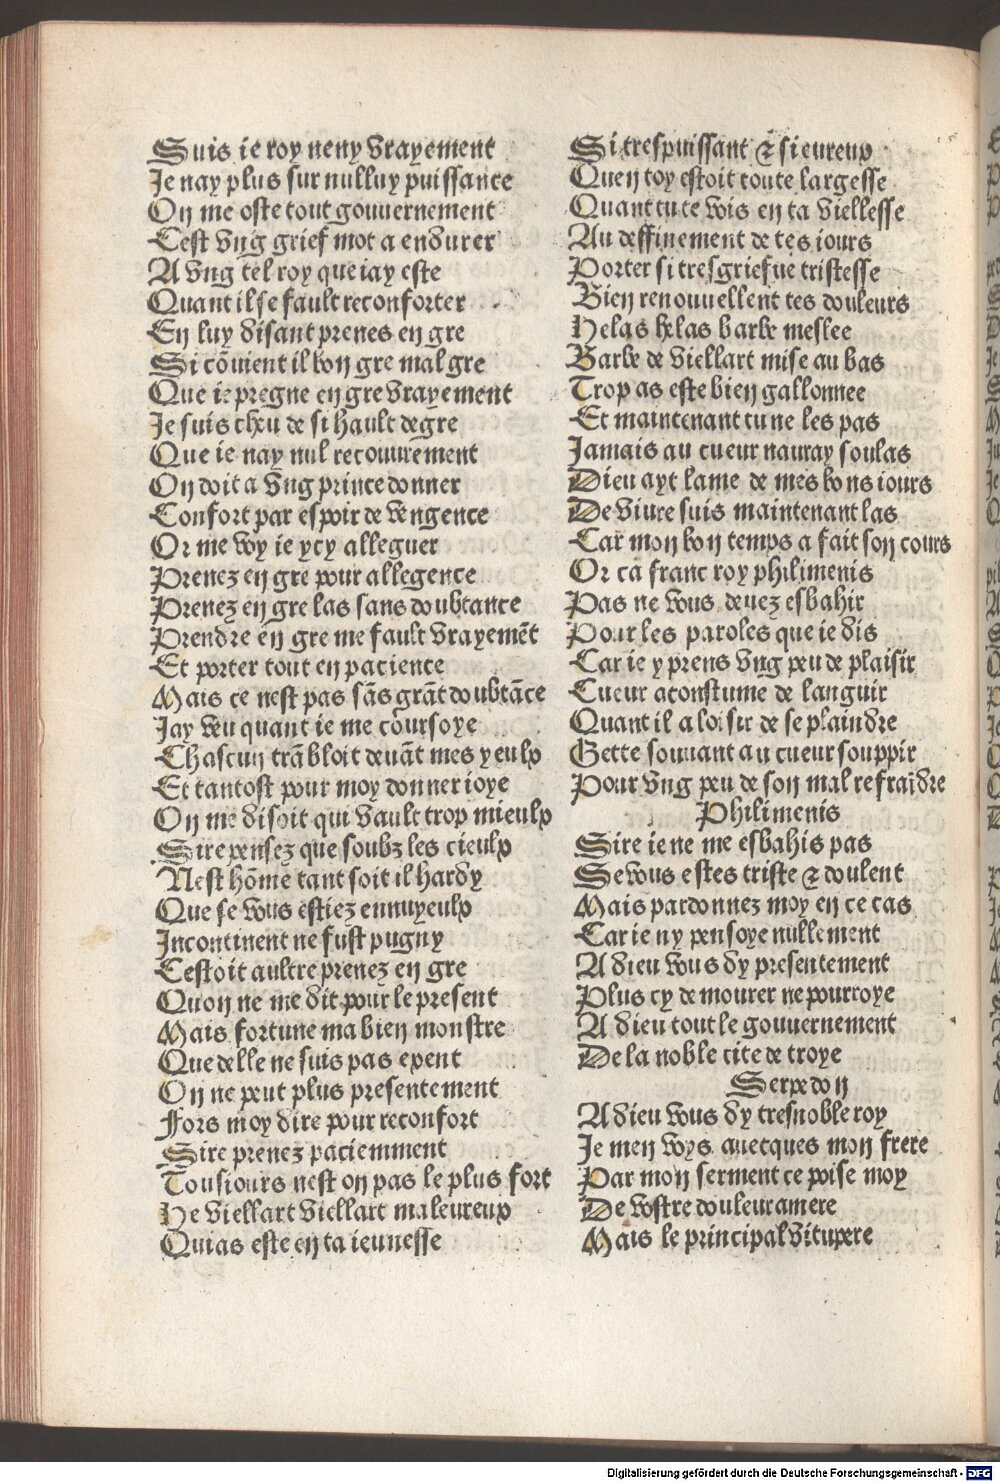 Suis ie roy neny vrayement
Je nay plus sur nulluy puissance
On me oste tout gouuernement
Cest vng grief mot a endurer
A vng tel roy que iay este
Quant il se fault reconforter
En luy disant prenes en gre
Si cõuient il bon gre mal gre
Que ie pregne en gre vrayement
Je suis cheu de si hault degre
Que ie nay nul recouurement
On doit a vng prince donner
Confort par espoir de vengence
Or me voy ie ycy alleguer
Prenez en gre pour allegence
Prenez en gre las sans doubtance
Prendre en gre me fault vrayemẽt
Et porter tout en pacience
Mais ce nest pas sãs grãt doubtãce
Jay veu quant ie me coursoye
Chascun trãbloit deuãt mes yeulx
Et tantost pour moy donner ioye
On me disoit qui vault trop mieulx
Sire pensez que soubz les cieulx
Nest hõme tant soit il hardy
Que se vous estiez ennuyeulx
Incontinent ne fust pugny
Cestoit aultre prenez en gre
Quon ne me dit pour le present
Mais fortune ma bien monstre
Que delle ne suis pas exent
On ne peut plus presentement
Fors moy dire pour reconfort
Sire prenez paciemment
Tousiours nest on pas le plus fort
He viellart viellart maleureux
Qui as este en ta ieunesse
Si trespuissant & si eureux
Quen toy estoit toute largesse
Quant tu te vois en ta viellesse
Au deffinement de tes iours
Porter si tresgriefue tristesse
Bien renouuellent tes douleurs
Helas helas barbe meslee
Barbe de viellart mise au bas
Trop as este bien gallonnee
Et maintenant tu ne les pas
Jamais au cueur nauray soulas
Dieu ayt lame de mes bons iours
De viure suis maintenant las
Car mon bon temps a fait son cours
Or ca franc roy philimenis
Pas ne vous deuez esbahir
Pour les paroles que ie dis
Car ie y prens vng peu de plaisir
Cueur aconstume de languir
Quant il a loisir de se plaindre
Gette souuant au cueur souppir
Pour vng peu de son mal refraĩdre
Philimenis
Sire ie ne me esbahis pas
Se vous estes triste & doulent
Mais pardonnez moy en ce cas
Car ie ny pensoye nullement
A dieu vous dy presentement
Plus cy demourer ne pourroye
A dieu tout le gouuernement
De la noble cite de troye
Serpedon
A dieu vous dy tresnoble roy
Je men voys auecques mon frere
Par mon serment ce poise moy
De vostre douleur amere
Mais le principal vitupere
Digitalisierung gefördert durch die Deutsche Forschungsgemeinschaft - DFG